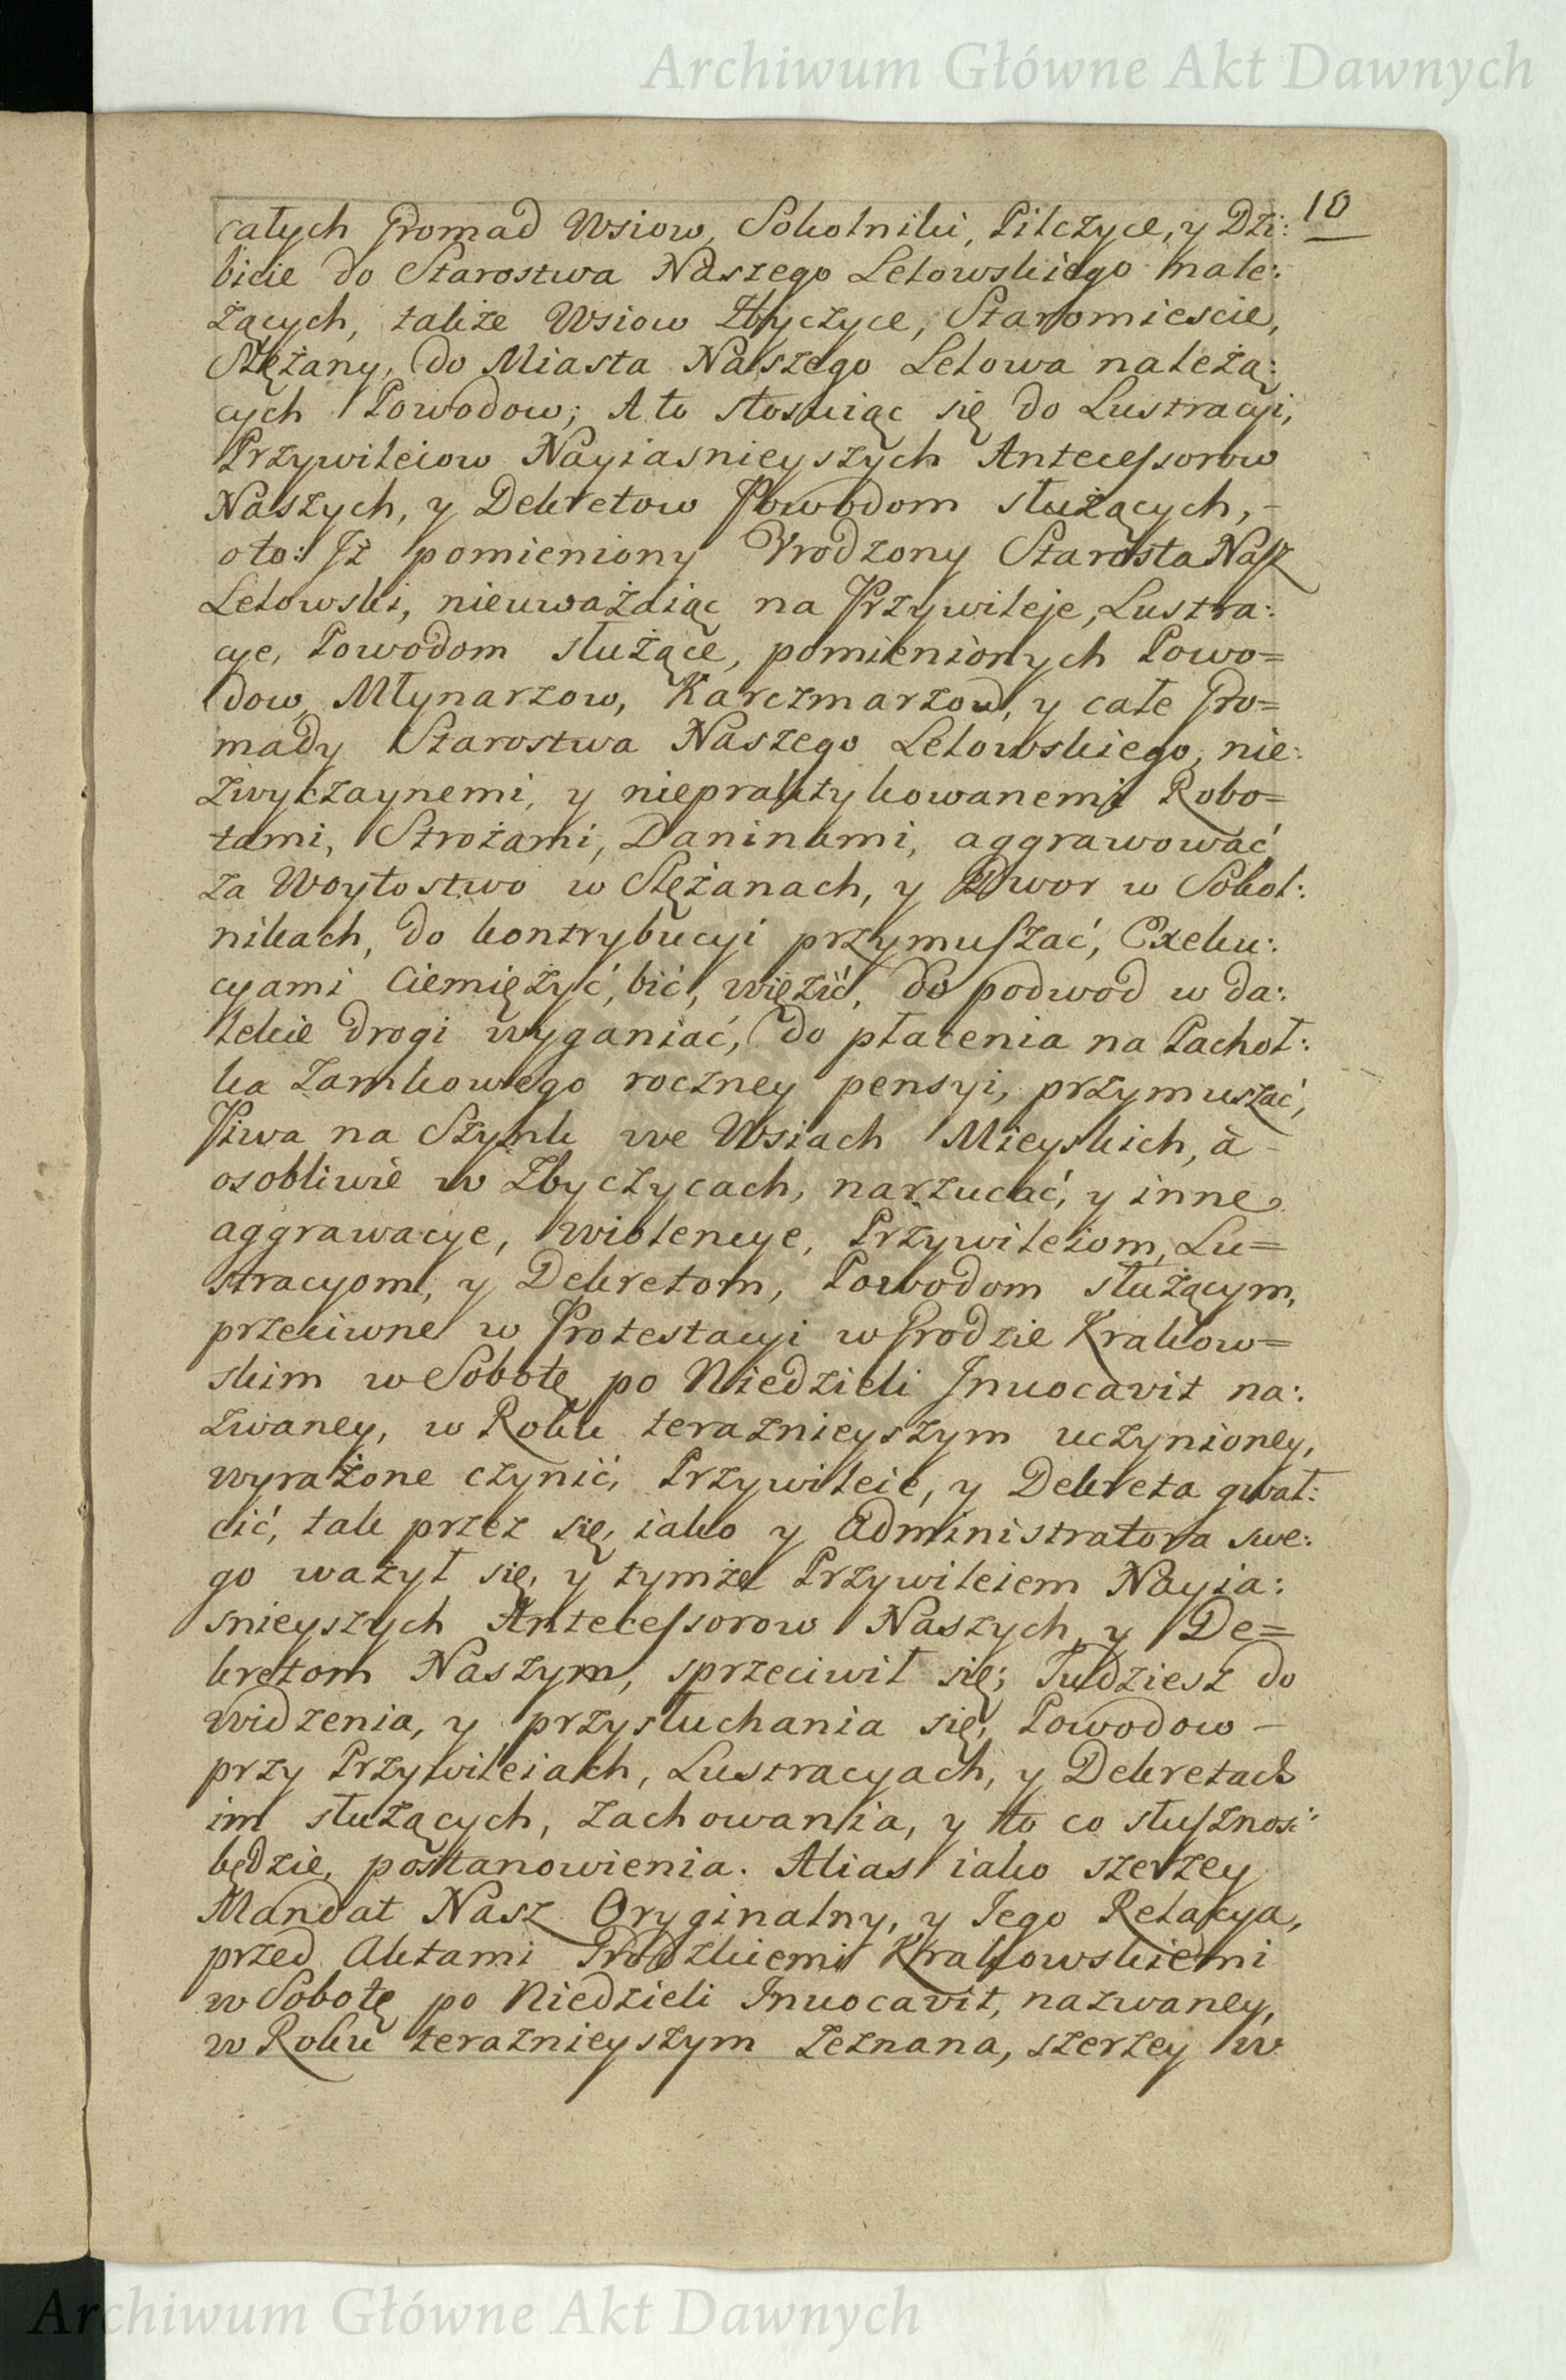 Archiwum Główne Akt Dawnych
10
całych Gromad Wsiow, Sokolniki, Pilczyce, y Dzi:
bicie do Starostwa Naszego Lelowskiego nale:
żących, także Wsiow Zbyczyce, Staromiescie,
Slężany, do Miasta Naszego Lelowa należą:
cych Powodow; A to stosuiąc się do Lustracyi,
Przywileiow Nayiasnieyszych Antecessorow
Naszych, y Dekretow Powodom służących, -
oto: Jż pomieniony Vrodzony Starosta Nasz
Lelowski, nieuważaiąc na Przywileje, Lustra:
cye, Powodom służące, pomienionych Powo=
dow, Młynarzow, Karczmarzow, y całe Gro=
mady Starostwa Naszego Lelowskiego, nie:
zwyczaynemi, y niepraktykowanemi Robo=
tami, Strożami, Daninami, aggrawować
za Woytostwo w Slężanach, y Dwor w Sokol:
nikach, do kontrybucyi przymuszać, Exeku:
cyami Ciemiężyć, bić, więzić, do podwod w da:
lekie drogi wyganiać, do płacenia na Pachoł:
ka Zamkowego roczney pensyi, przymuszać,
Piwa na Szynk we Wsiach Mieyskich, à -
osobliwie w Zbyczycach, narzucać, y inne
aggrawacye, wiolencye, Przywileiom, Lu=
stracyom, y Dekretom, Powodom służącym,
przeciwne w Protestacyi w Grodzie Krakow=
skim w Sobotę po Niedzieli Jnuocavit na:
zwaney, w Roku teraznieyszym uczynioney,
wyrażone czynić, Przywileie, y Dekreta gwał:
cić, tak przez się, iako y Administratora swe:
go ważył się, y tymże Przywileiem Nayia:
snieyszych Antecessorow Naszych, y De=
kretom Naszym, sprzeciwił się; Tudziesz do
widzenia, y przysłuchania się, Powodow -
przy Przywileiach, Lustracyach, y Dekretach
im służących, zachowania, y to co słusznosć
będzie, postanowienia. Alias iako szerzey
Mandat Nasz Oryginalny, y Jego Relacya,
przed Aktami Grodzkiemi Krakowskiemi
w Sobotę po Niedzieli Jnuocavit, nazwaney,
w Roku teraznieyszym zeznana, szerzey w
Archiwum Główne Akt Dawnych